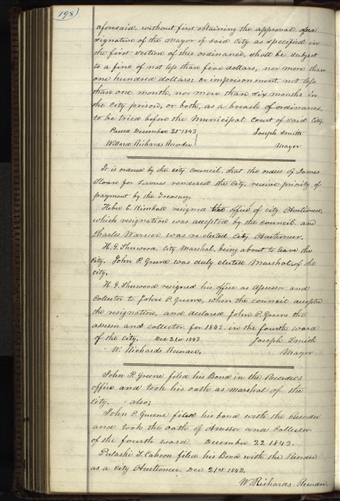 198
aforesaid, without first obtaining the approval and
signature of the Mayor of said City as specified in
the first section of this ordinance, shall be subject
to a fine of not less than five dollars, nor more than
one hundred dollars or imprisonment not less
than one month, nor more than six months in
the city prison, or both, as a breach of ordinance
to be tried before the Municipal Court of said City.
Passed December 21st 1843. Joseph Smith
Willard Richards Recorder Mayor
It is ordered by the city council, that the order of James
Sloan for services rendered the city, receive priority of
payment by the Treasury.
Heber C. Kimball resigned the office of city Auctioneer,
which resignation was accepted by the council, and
Charles Warner was elected City Auctioneer.
H. G. Sherwood, City Marshal, being about to leave the
city, John P. Greene was duly elected Marshal of the
city.
H. G. Sherwood resigned his office as Assessor and
Collector to John P. Greene, when the council accepted
the resignation, and declared John P. Greene the
assessor and collector for 1843, in the fourth ward
of the city. Dec 21st 1843. Joseph Smith
W. Richards Recorder, Mayor
John P. Greene filed his Bond in the Recorder's
office and took his oath as Marshal of the
city. also,
John P. Greene filed his bond with the Recorder
and took the oath of Assessor and Collector
of the fourth ward. December 22 1843.
Pulaski S. Cahoon filed his Bond with the Recorder
as a City Auctioneer. Dec 21st 1843.
W. Richards. Recorder